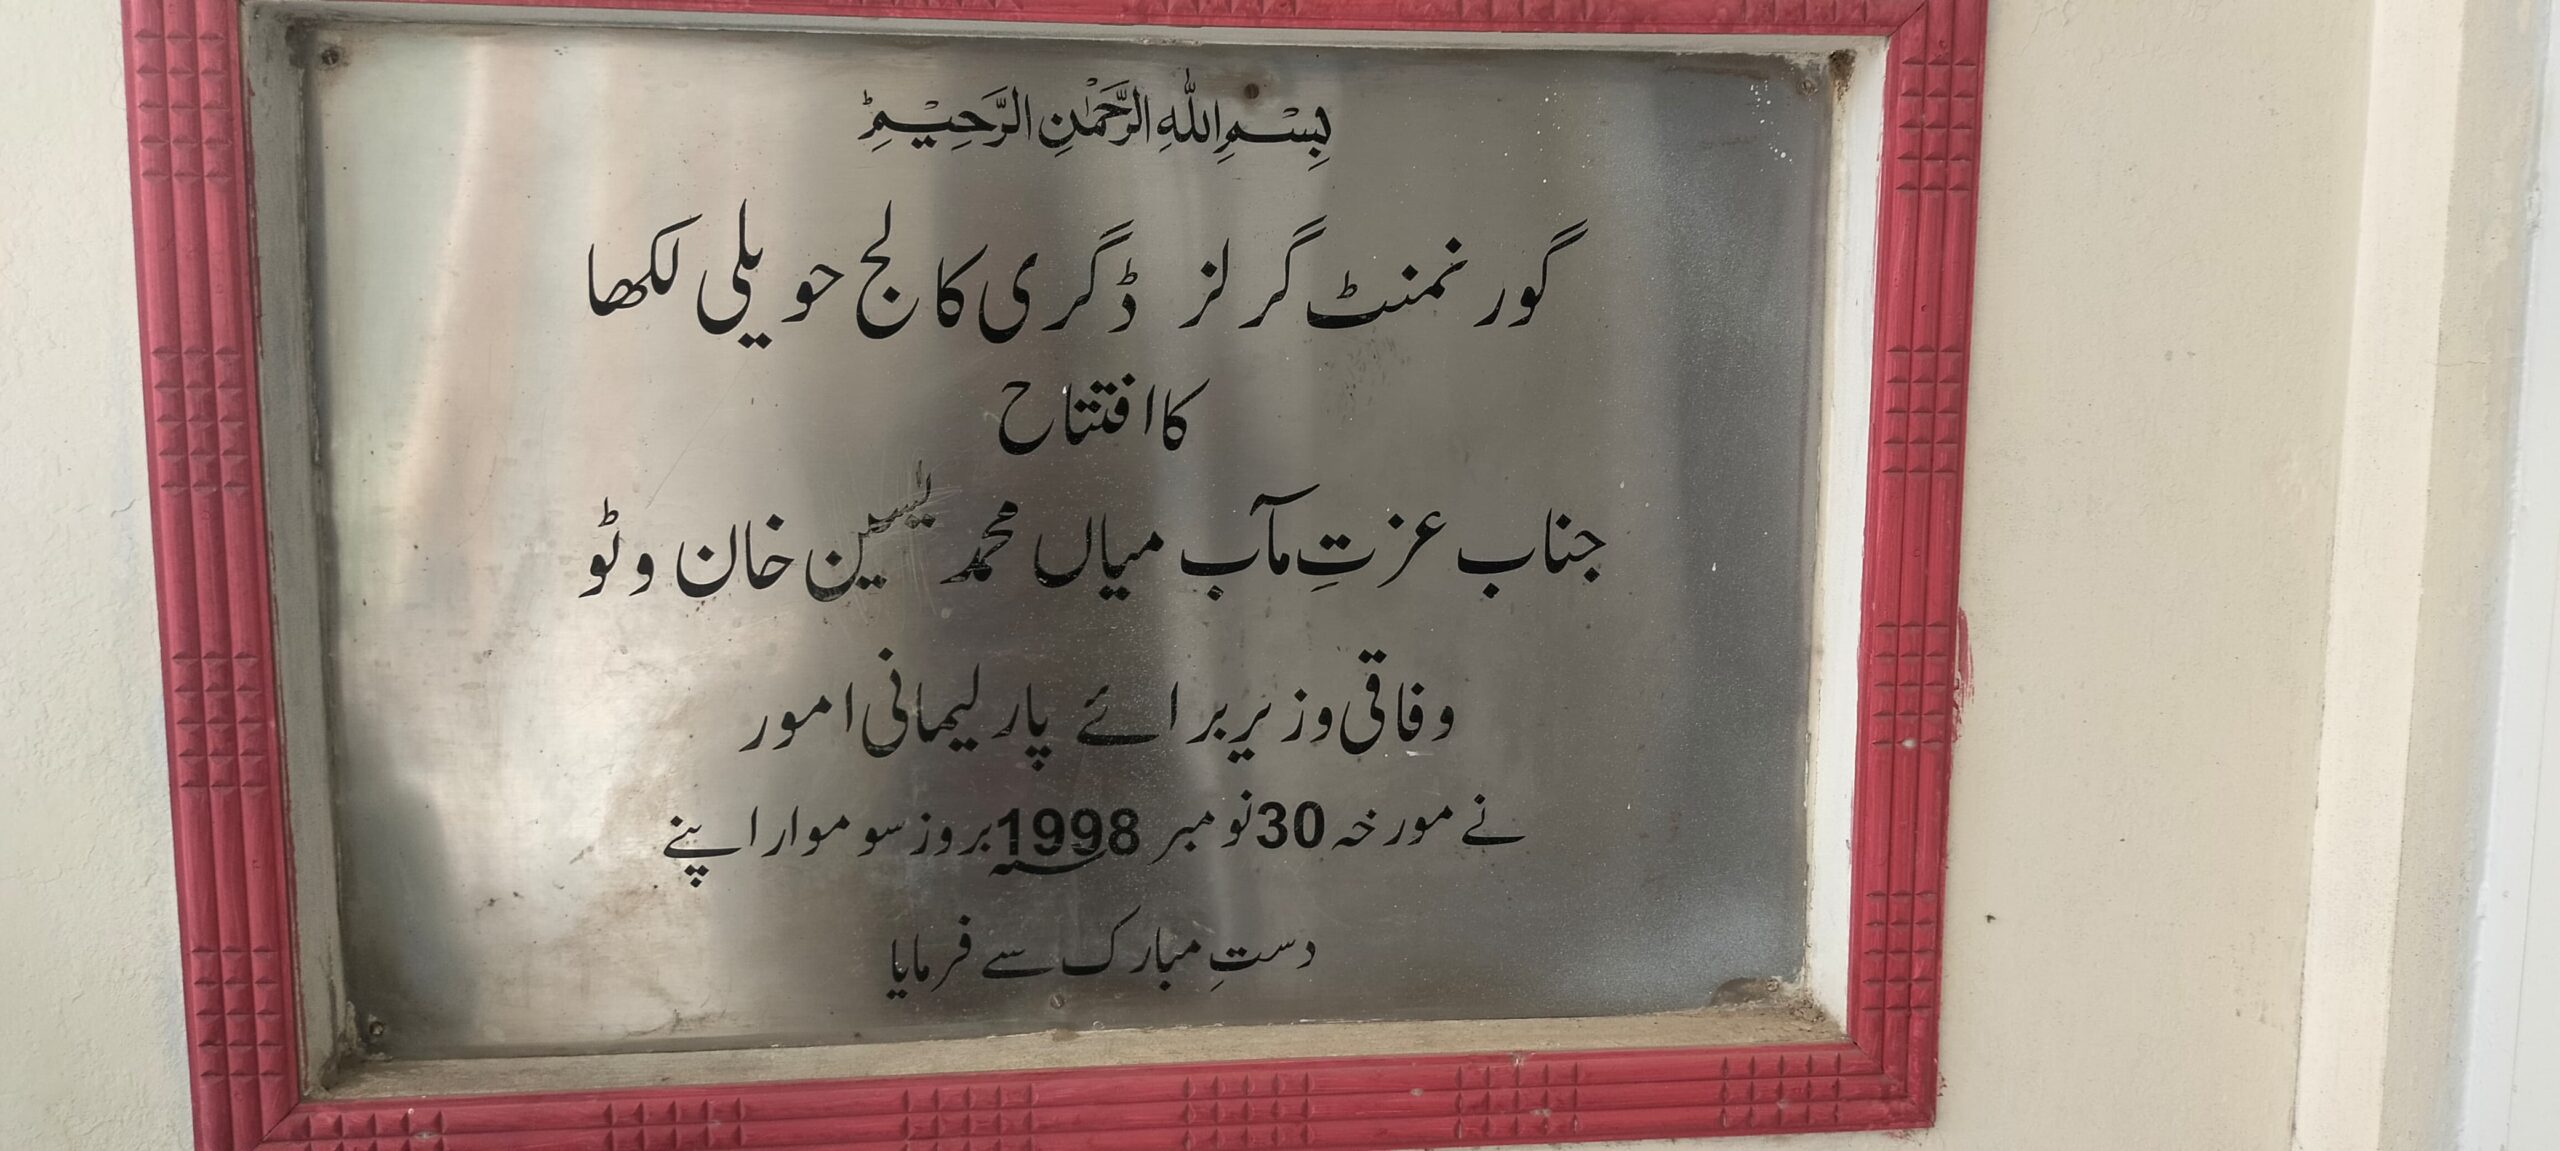 بِسْمِ اللّٰہِ الرَّحْمٰنِ الرَّحِیْمِ
گورنمنٹ گرلز ڈگری کالج حویلی لکھا
کا افتتاح
جناب عزتِ مآب میاں محمد یٰسین خان وٹو
وفاقی وزیر برائے پارلیمانی امور
نے مورخہ 30 نومبر 1998؁ بروز سوموار اپنے
دستِ مبارک سے فرمایا